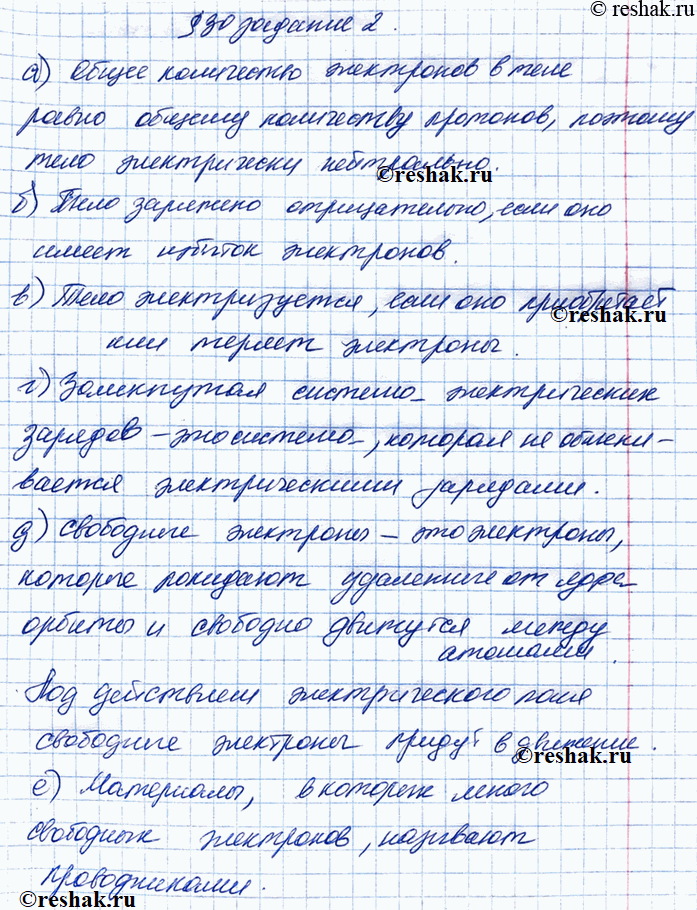 ©reshak.ru
§30 задание 2.
а) Общее количество электронов в теле
равно общему количеству протонов, поэтому
тело электрически нейтрально.
©reshak.ru
б) Тело заряжено отрицательно, если оно
имеет избыток электронов.
в) Тело электризуется, если оно приобретает
©reshak.ru
или теряет электроны.
г) Замкнутая система электрических
зарядов – это система, которая не обмени-
вается электрическими зарядами.
д) Свободные электроны – это электроны,
которые покидают удаленные от ядра
орбиты и свободно движутся между
атомами.
Под действием электрического поля
свободные электроны придут в движение.
©reshak.ru
е) Материалы, в которых много
свободных электронов, называют
проводниками.
©reshak.ru